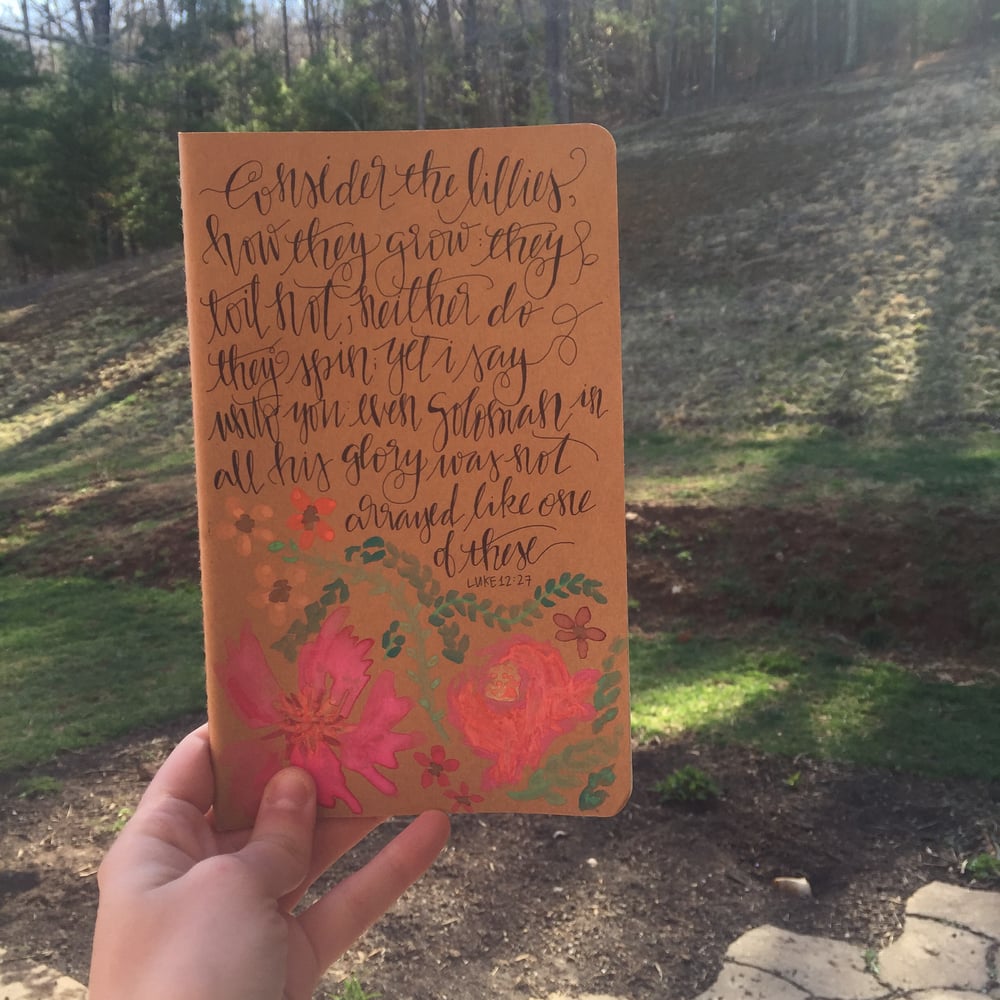 Consider the lillies,
how they grow: they
toil not, neither do
they spin: yet i say
unto you even Soloman in
all his glory was not
arrayed like one
of these
LUKE 12:27